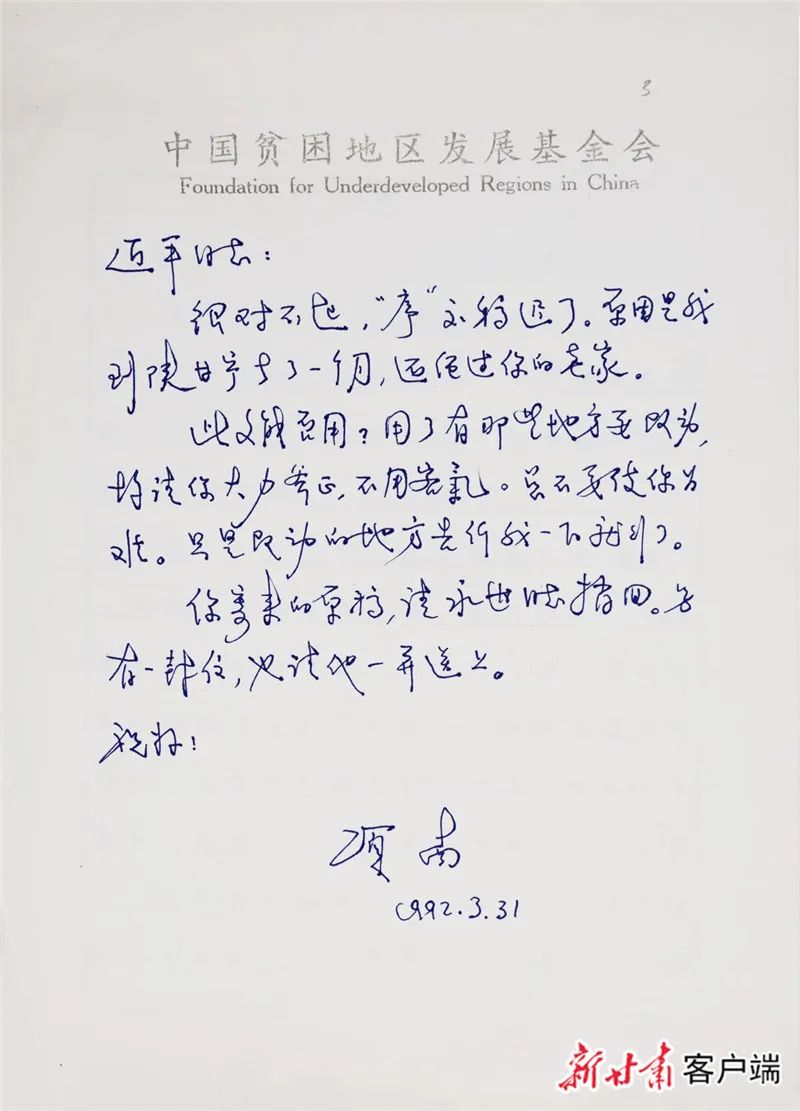 3
中国贫困地区发展基金会
Foundation for Underdeveloped Regions in China
近平同志：
很对不起，“序”交稿迟了。原因是我
到陕甘宁去了一个月，还经过你的老家。
此文能否用？用了有那些地方要改动，
均请你大力斧正，不用客气。总不要使你为
难。只是改动的地方告诉我一下就行了。
你寄来的原稿，请永世同志捎回。另
有一封信，也请他一并送上。
祝好！
项南
1992.3.31
新甘肃 客户端